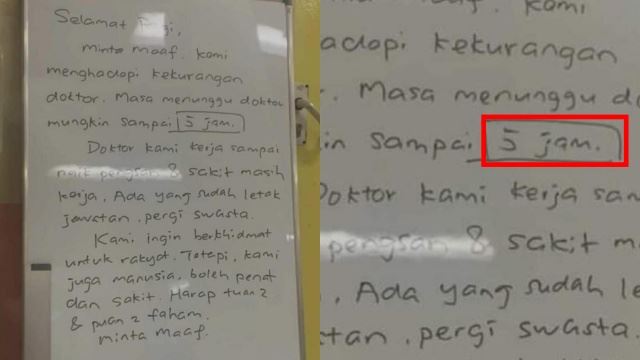 Selamat Pagi,
minta maaf. Kami
menghadapi kekurangan
doktor. Masa menunggu doktor
mungkin sampai 5 jam.
Doktor kami kerja sampai
nait pengsan & sakit masih
kerja. Ada yang sudah letak
jawatan, pergi swasta.
Kami ingin berkhidmat
untuk rakyat. Tetapi, kami
juga manusia, boleh penat
dan sakit. Harap tuan2
& puan2 faham.
minta maaf.
maaf. Kami
adapi kekurangan
. Masa menunggu do
in sampai 5 jam.
Doktor kami kerja sam
pengsan & sakit m
. Ada yang sudah le
tan, pergi swasta.